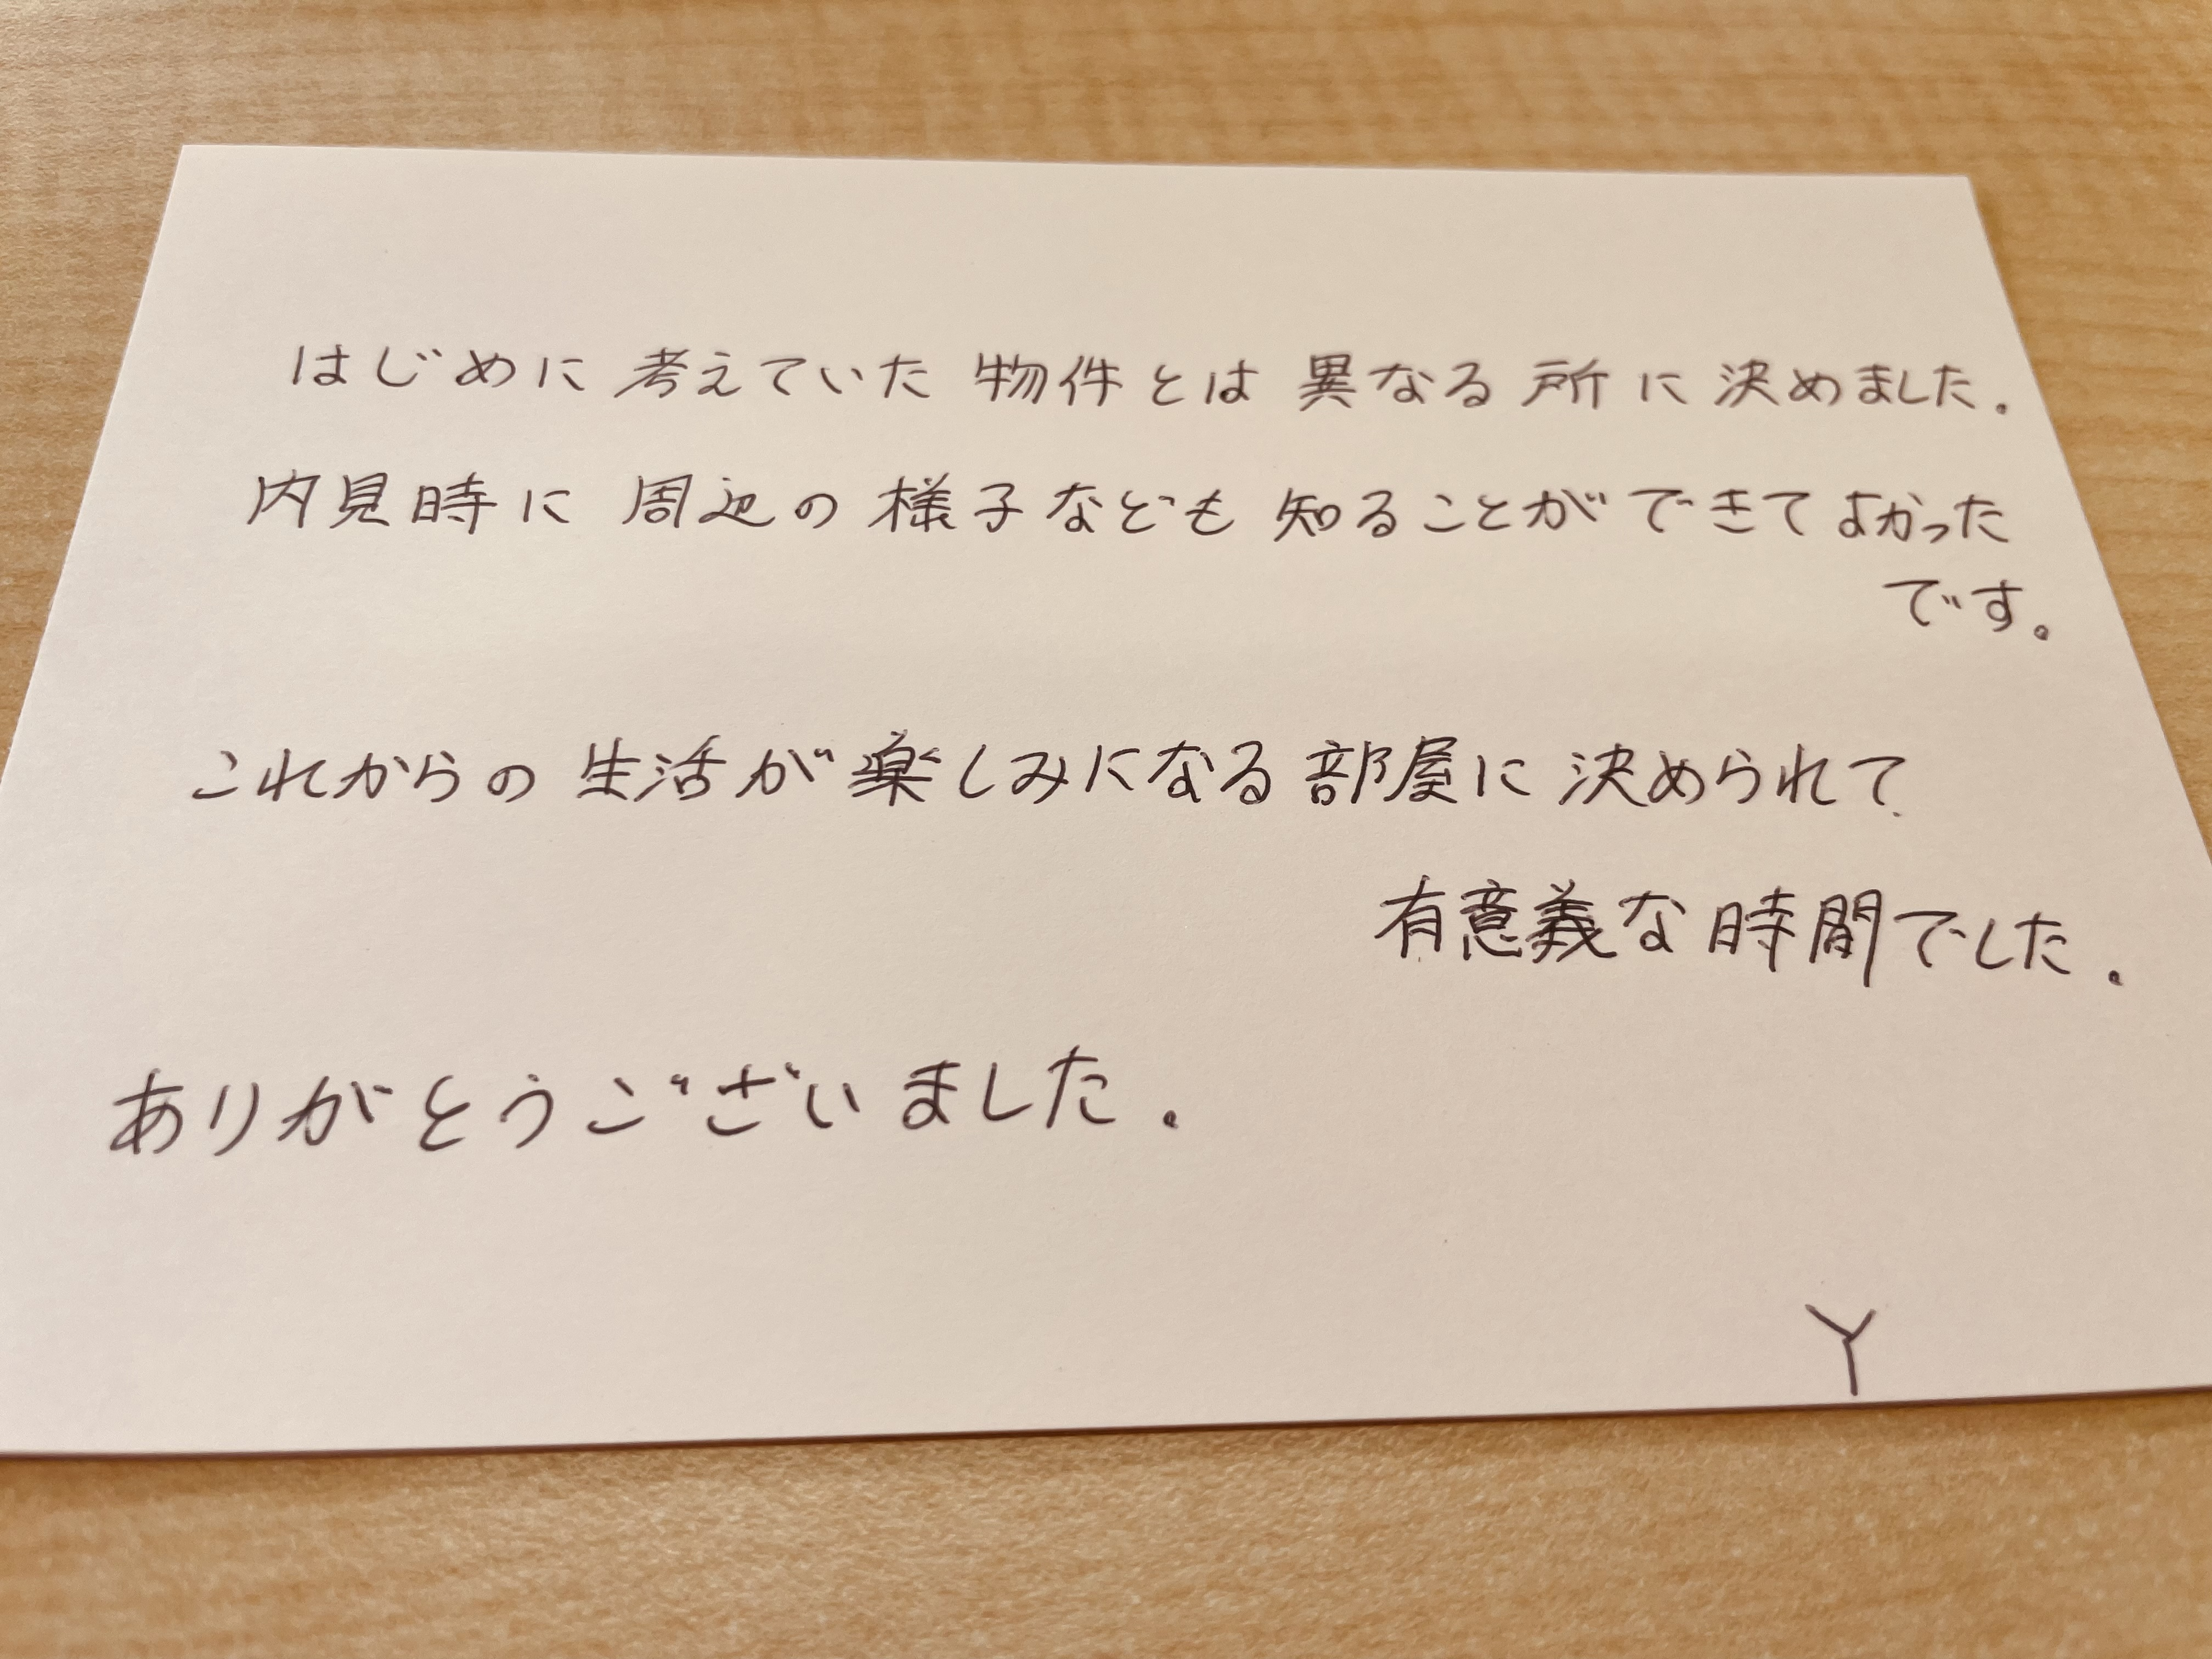 はじめに考えていた物件とは異なる所に決めました。
内見時に周辺の様子なども知ることができてよかった
です。
これからの生活が楽しみになる部屋に決められて
有意義な時間でした。
ありがとうございました。
Y